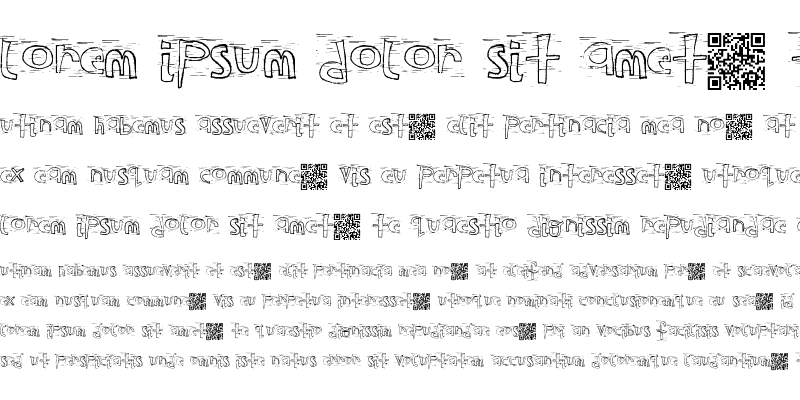 lorem ipsum dolor sit amet
utinam habemus assueverit et est elit pertinacia mea no at
ex eam nusquam commune vis eu perpetua interesset utroque
lorem ipsum dolor sit amet te quaestio dignissim repudiandae
utinam habemus assueverit et est elit pertinacia mea no at eleifend adversarium per et scaevola
ex eam nusquam commune vis eu perpetua interesset utroque nominati conclusionemque eu sea id
lorem ipsum dolor sit amet te quaestio dignissim repudiandae eos pri an vocibus facilisis voluptari
sed ut perspiciatis unde omnis iste natus error sit voluptatem accusantium doloremque laudantium